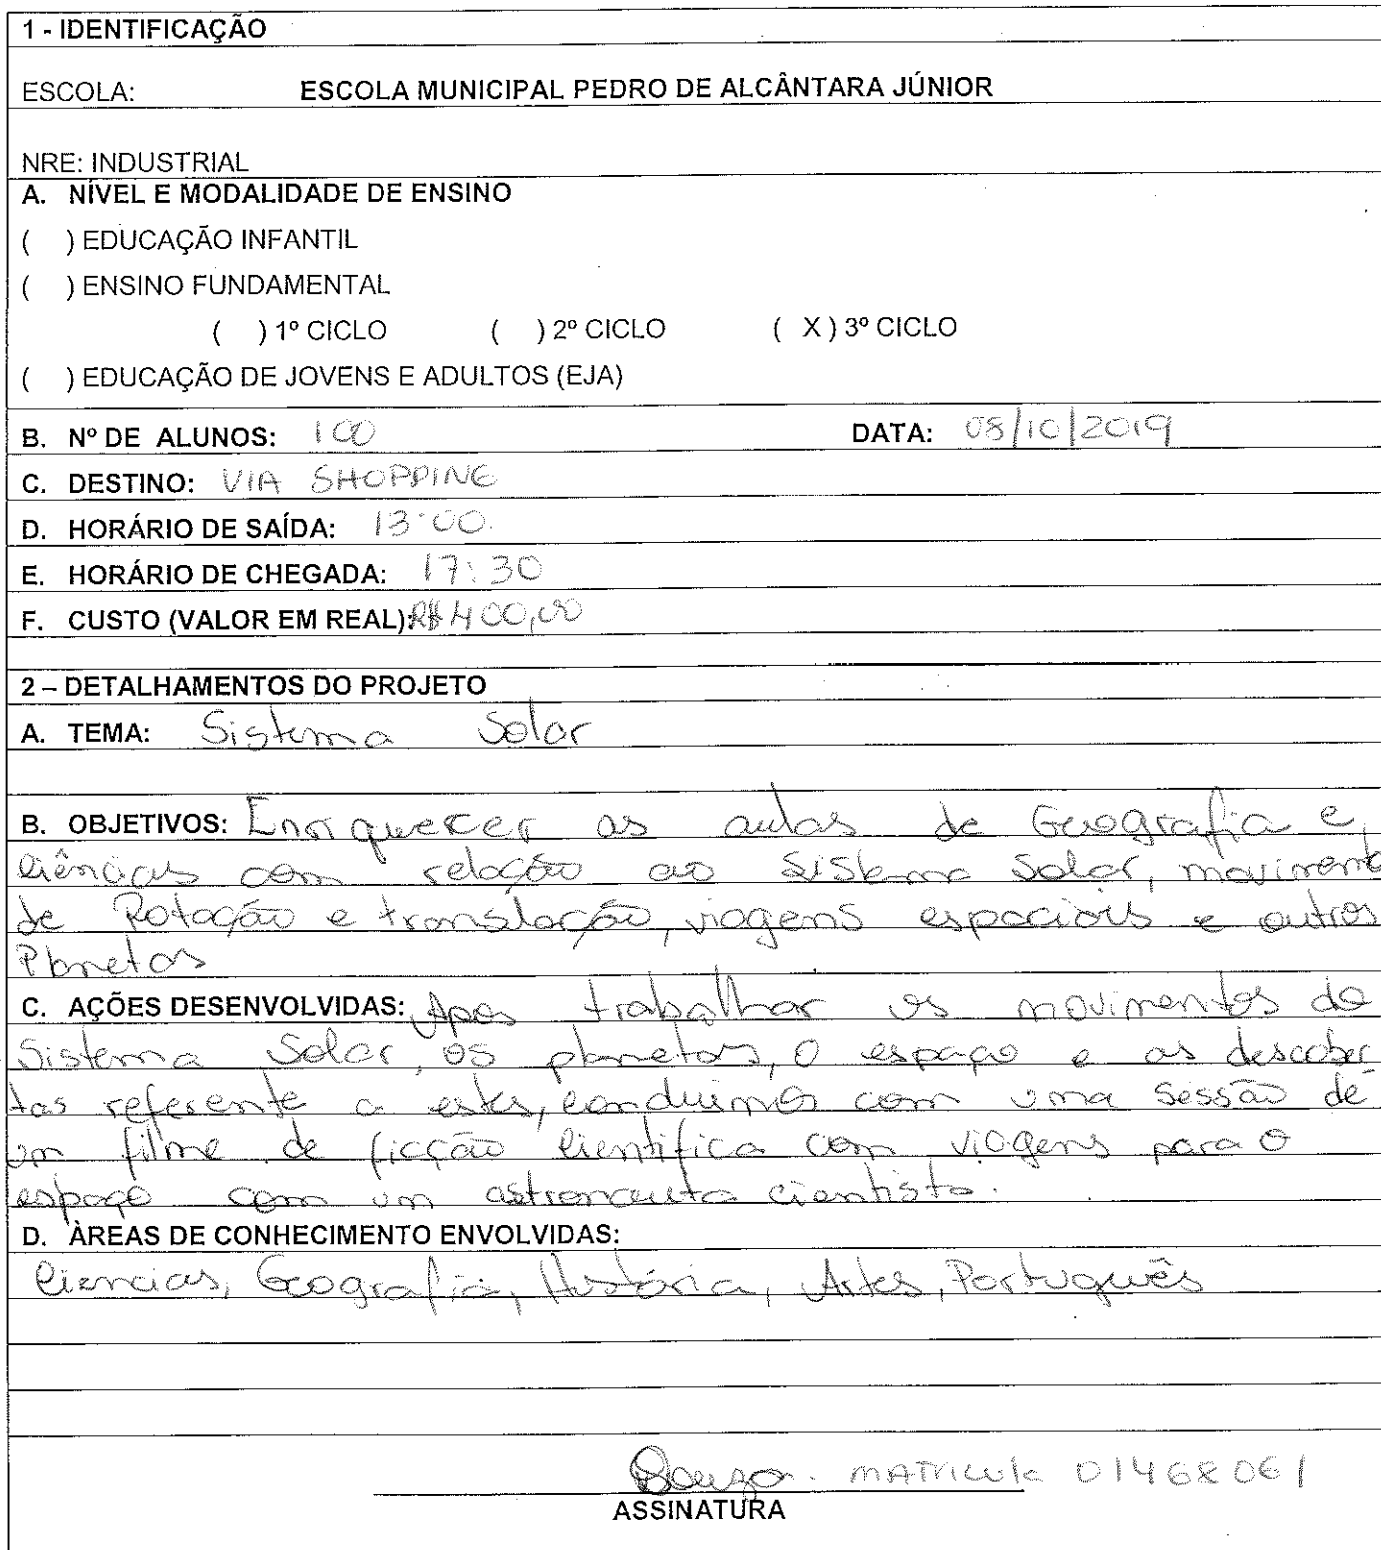 1 - IDENTIFICAÇÃO
ESCOLA: ESCOLA MUNICIPAL PEDRO DE ALCÂNTARA JÚNIOR
NRE: INDUSTRIAL
A. NÍVEL E MODALIDADE DE ENSINO
( ) EDUCAÇÃO INFANTIL
( ) ENSINO FUNDAMENTAL
( ) 1º CICLO ( ) 2º CICLO ( X ) 3º CICLO
( ) EDUCAÇÃO DE JOVENS E ADULTOS (EJA)
B. Nº DE ALUNOS: 100 DATA: 08/10/2019
C. DESTINO: VIA SHOPPING
D. HORÁRIO DE SAÍDA: 13:00.
E. HORÁRIO DE CHEGADA: 17:30
F. CUSTO (VALOR EM REAL): R$ 400,00
2 – DETALHAMENTOS DO PROJETO
A. TEMA: Sistema Solar
B. OBJETIVOS: Enriquecer as aulas de Geografia e
Ciências com relação ao Sistema Solar, movimento
de Rotação e translação, viagens espaciais e outros
Planetas
C. AÇÕES DESENVOLVIDAS: Após trabalhar os movimentos do
Sistema Solar, os planetas, o espaço e as descober
tas referente a estes, concluimos com uma sessão de
um filme de ficção cientifica com viagens para o
espaço com um astronauta cientista.
D. ÀREAS DE CONHECIMENTO ENVOLVIDAS:
Ciencias, Geografia, História, Artes, Português
MATRICULA 01468061
ASSINATURA